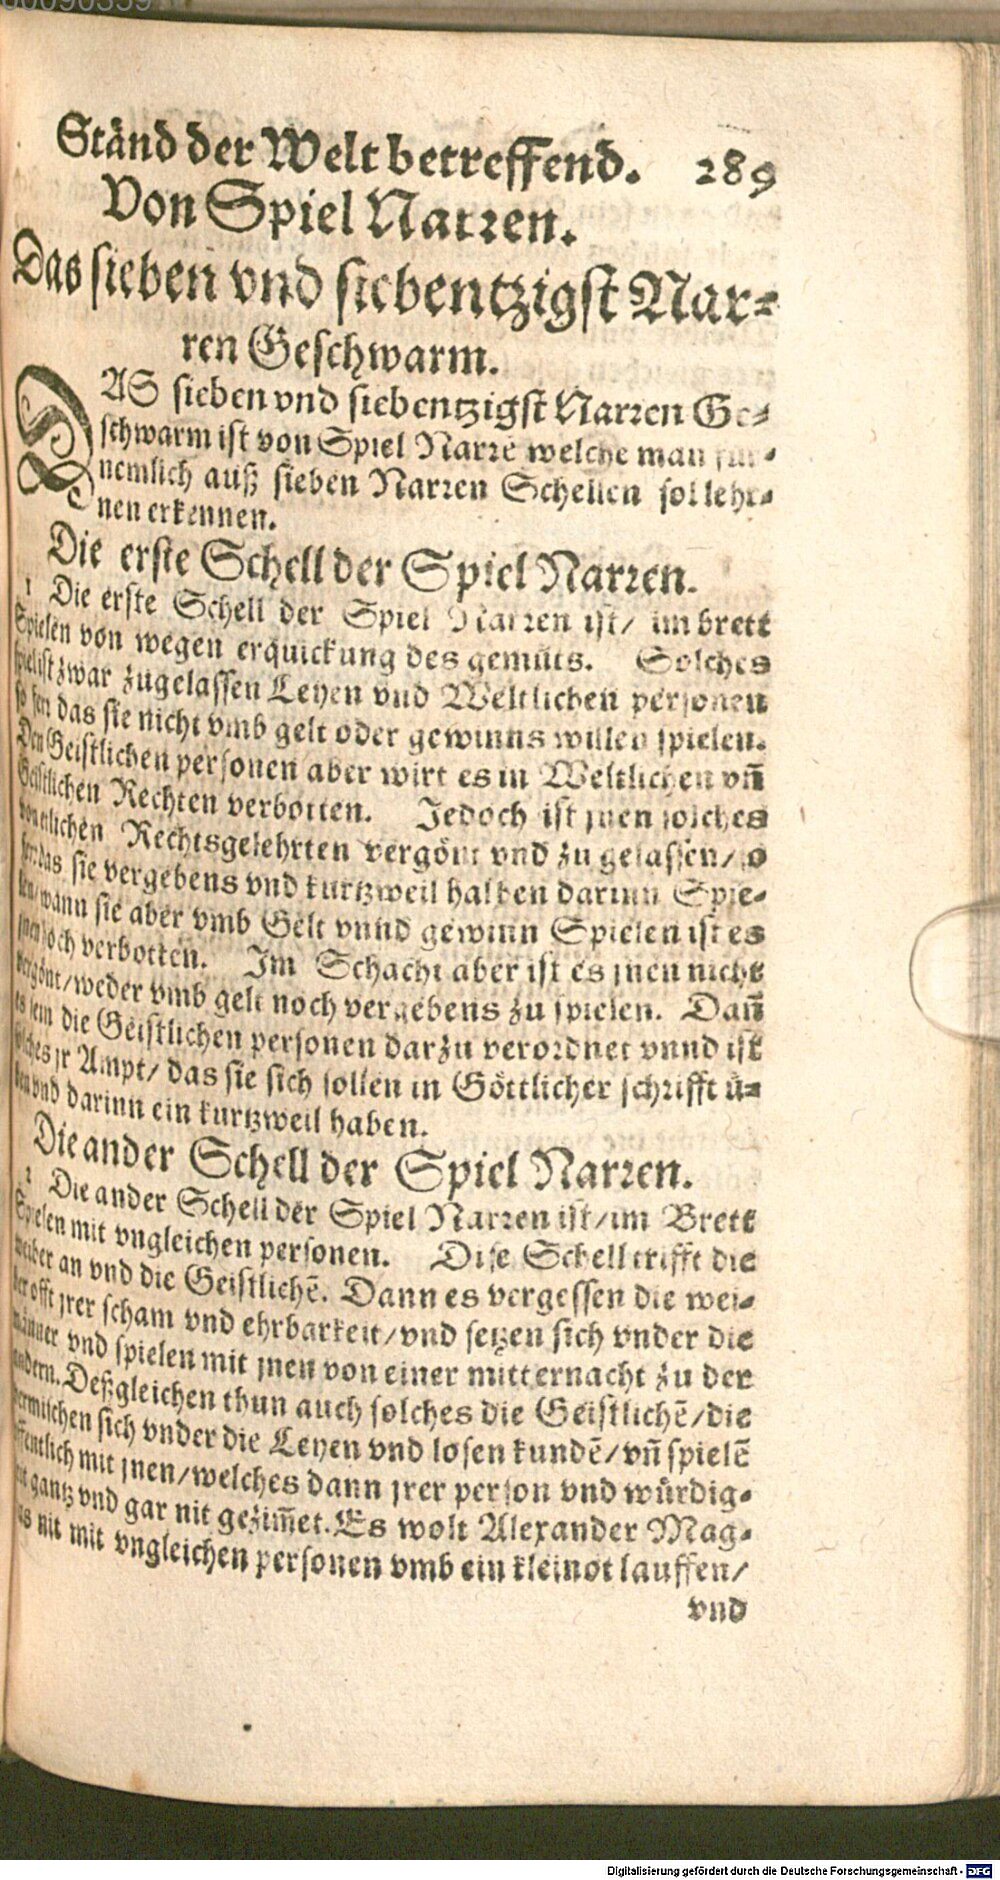 00090359
Ständ der Welt betreffend. 289
Von Spiel Narren.
Das sieben vnd siebentzigst Nar⸗
ren Geschwarm.
DAS sieben vnd siebentzigst Narren Ge⸗
schwarm ist von Spiel Narrē welche man für⸗
nemlich auß sieben Narren Schellen sol lehr⸗
nen erkennen.
Die erste Schell der Spiel Narren.
1 Die erste Schell der Spiel Narren ist/ im brett
Spielen von wegen erquickung des gemüts. Solches
spiel ist zwar zugelassen Leyen vnd Weltlichen personen
so fern das sie nicht vmb gelt oder gewinns willen spielen.
Den Geistlichen personen aber wirt es in Weltlichen vn̄
Geistlichen Rechten verbotten. Jedoch ist jnen solches
von etlichen Rechtsgelehrten vergönt vnd zu gelassen/ so
fer: das sie vergebens vnd kurtzweil halben darinn Spie⸗
len/ wann sie aber vmb Gelt vnnd gewinn Spielen ist es
jnen hoch verbotten. Im Schacht aber ist es jnen nicht
vergönt/ weder vmb gelt noch vergebens zu spielen. Dan̄
es sein die Geistlichen personen darzu verordnet vnnd ist
solches jr Ampt/ das sie sich sollen in Göttlicher schrifft ü⸗
ben vnd darinn ein kurtzweil haben.
Die ander Schell der Spiel Narren.
2 Die ander Schell der Spiel Narren ist/ im Brett
Spielen mit vngleichen personen. Dise Schell trifft die
weiber an vnd die Geistlichē. Dann es vergessen die wei⸗
ber offt jrer scham vnd ehrbarkeit/ vnd setzen sich vnder die
männer vnd spielen mit jnen von einer mitternacht zu der
andern. Deßgleichen thun auch solches die Geistlichē/ die
vermischen sich vnder die Leyen vnd losen kundē/ vn̄ spielē
öffentlich mit jnen/ welches dann jrer person vnd würdig⸗
keit gantz vnd gar nit gezim̄et. Es wolt Alexander Mag⸗
nus nit mit vngleichen personen vmb ein kleinot lauffen/
vnd
Digitalisierung gefördert durch die Deutsche Forschungsgemeinschaft - DFG